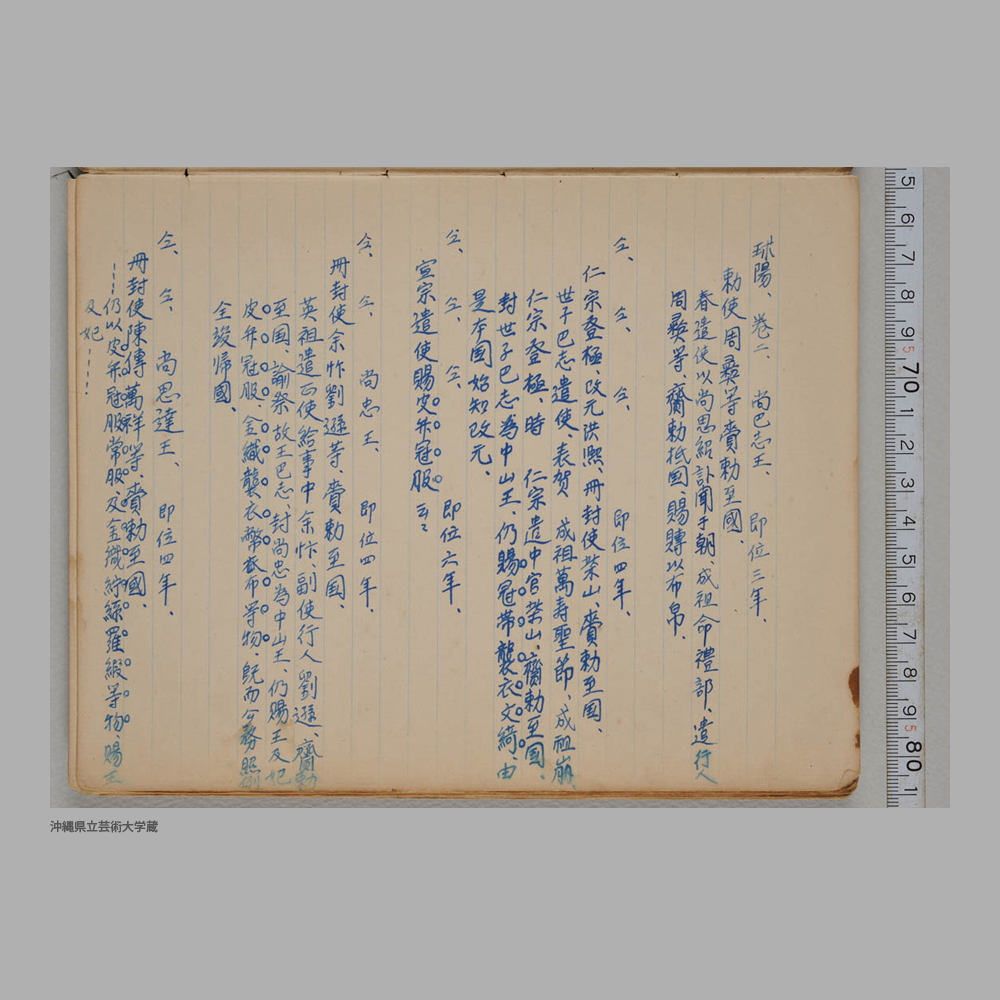 球陽、巻二、 尚巴志王、 即位三年、
勅使周彝等賚勅至國、
春遣使以尚思紹訃聞于朝、成祖命禮部、遣行人
周彝等、齎勅抵國、賜賻以布帛、
仝、 仝、 仝、 即位四年、
仁宗登極、改元洪熙、冊封使柴山、賚勅至国、
世子巴志遣使、表賀 成祖萬寿聖節、成祖崩
仁宗登極、時 仁宗遣中官柴山、齎勅至国、
封世子巴志為中山王、仍賜冠帯襲衣文綺、由
是本国始知改元、
仝、 仝、 仝、 即位六年、
宣宗遣使賜皮弁冠服云々
仝、 仝、 尚忠王、 即位四年、
冊封使余忭劉遜等、賚勅至国、
英祖遣正使給事中余忭、副使行人劉遜、齎勅
至国、諭祭故王巴志、封尚忠為中山王、仍賜王及妃
皮弁冠服、金織襲衣幣帋布等物、既而公務照例
全竣帰國、
仝、 仝、 尚思達王、 即位四年、
冊封使陳傳萬祥等、賚勅至國、
……仍以皮弁冠服常服、及金織紵絲羅緞等物、賜王
及妃……
5 6 7 8 9 70 1 2 3 4 5 6 7 8 9 80 1
沖縄県立芸術大学蔵